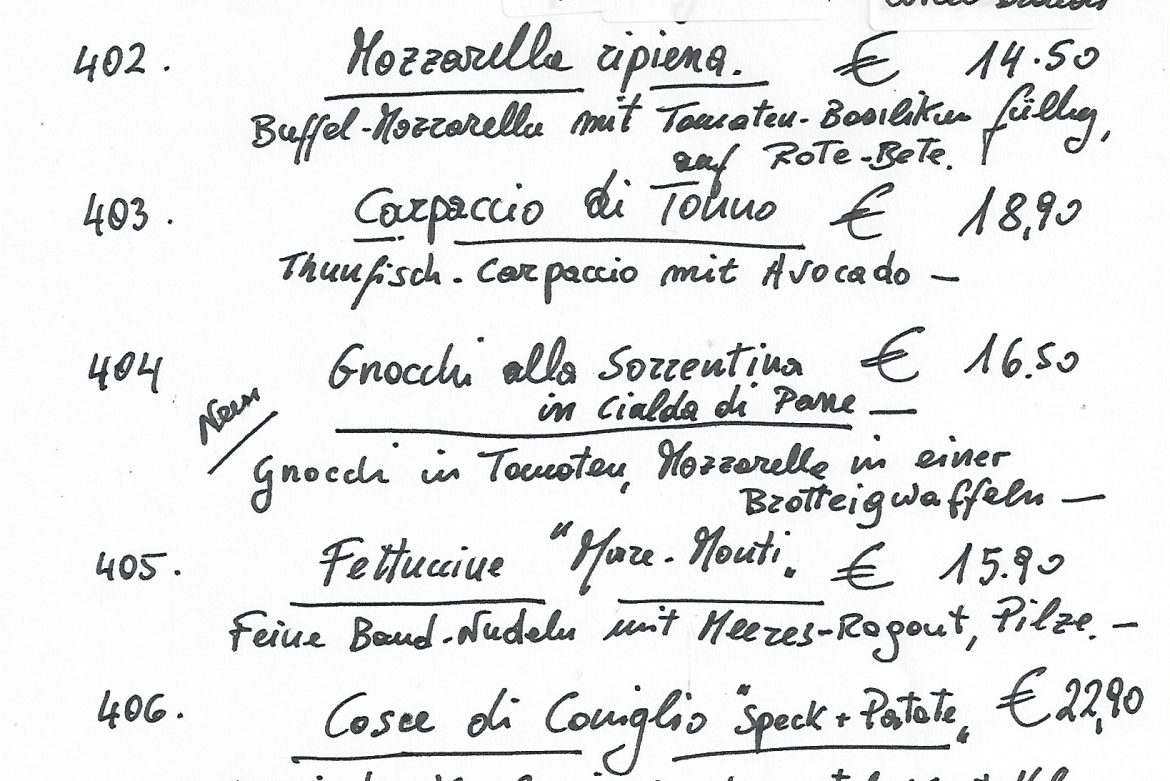 402. Mozzarella ripiena. € 14.50
Buffel-Mozzarella mit Tomaten-Basilikum füllung,
auf Rote-Bete.
403. Carpaccio di Tonno € 18,90
Thunfisch-Carpaccio mit Avocado –
404 Gnocchi alla Sorrentina € 16.50
in Cialda di Pane –
Neu
Gnocchi in Tomaten, Mozzarella in einer
Brotteigwaffeln –
405. Fettuccine "Mare-Monti" € 15.90
Feine Band-Nudeln mit Meeres-Ragout, Pilze. –
406. Cosce di Coniglio "Speck + Patate" € 22,90